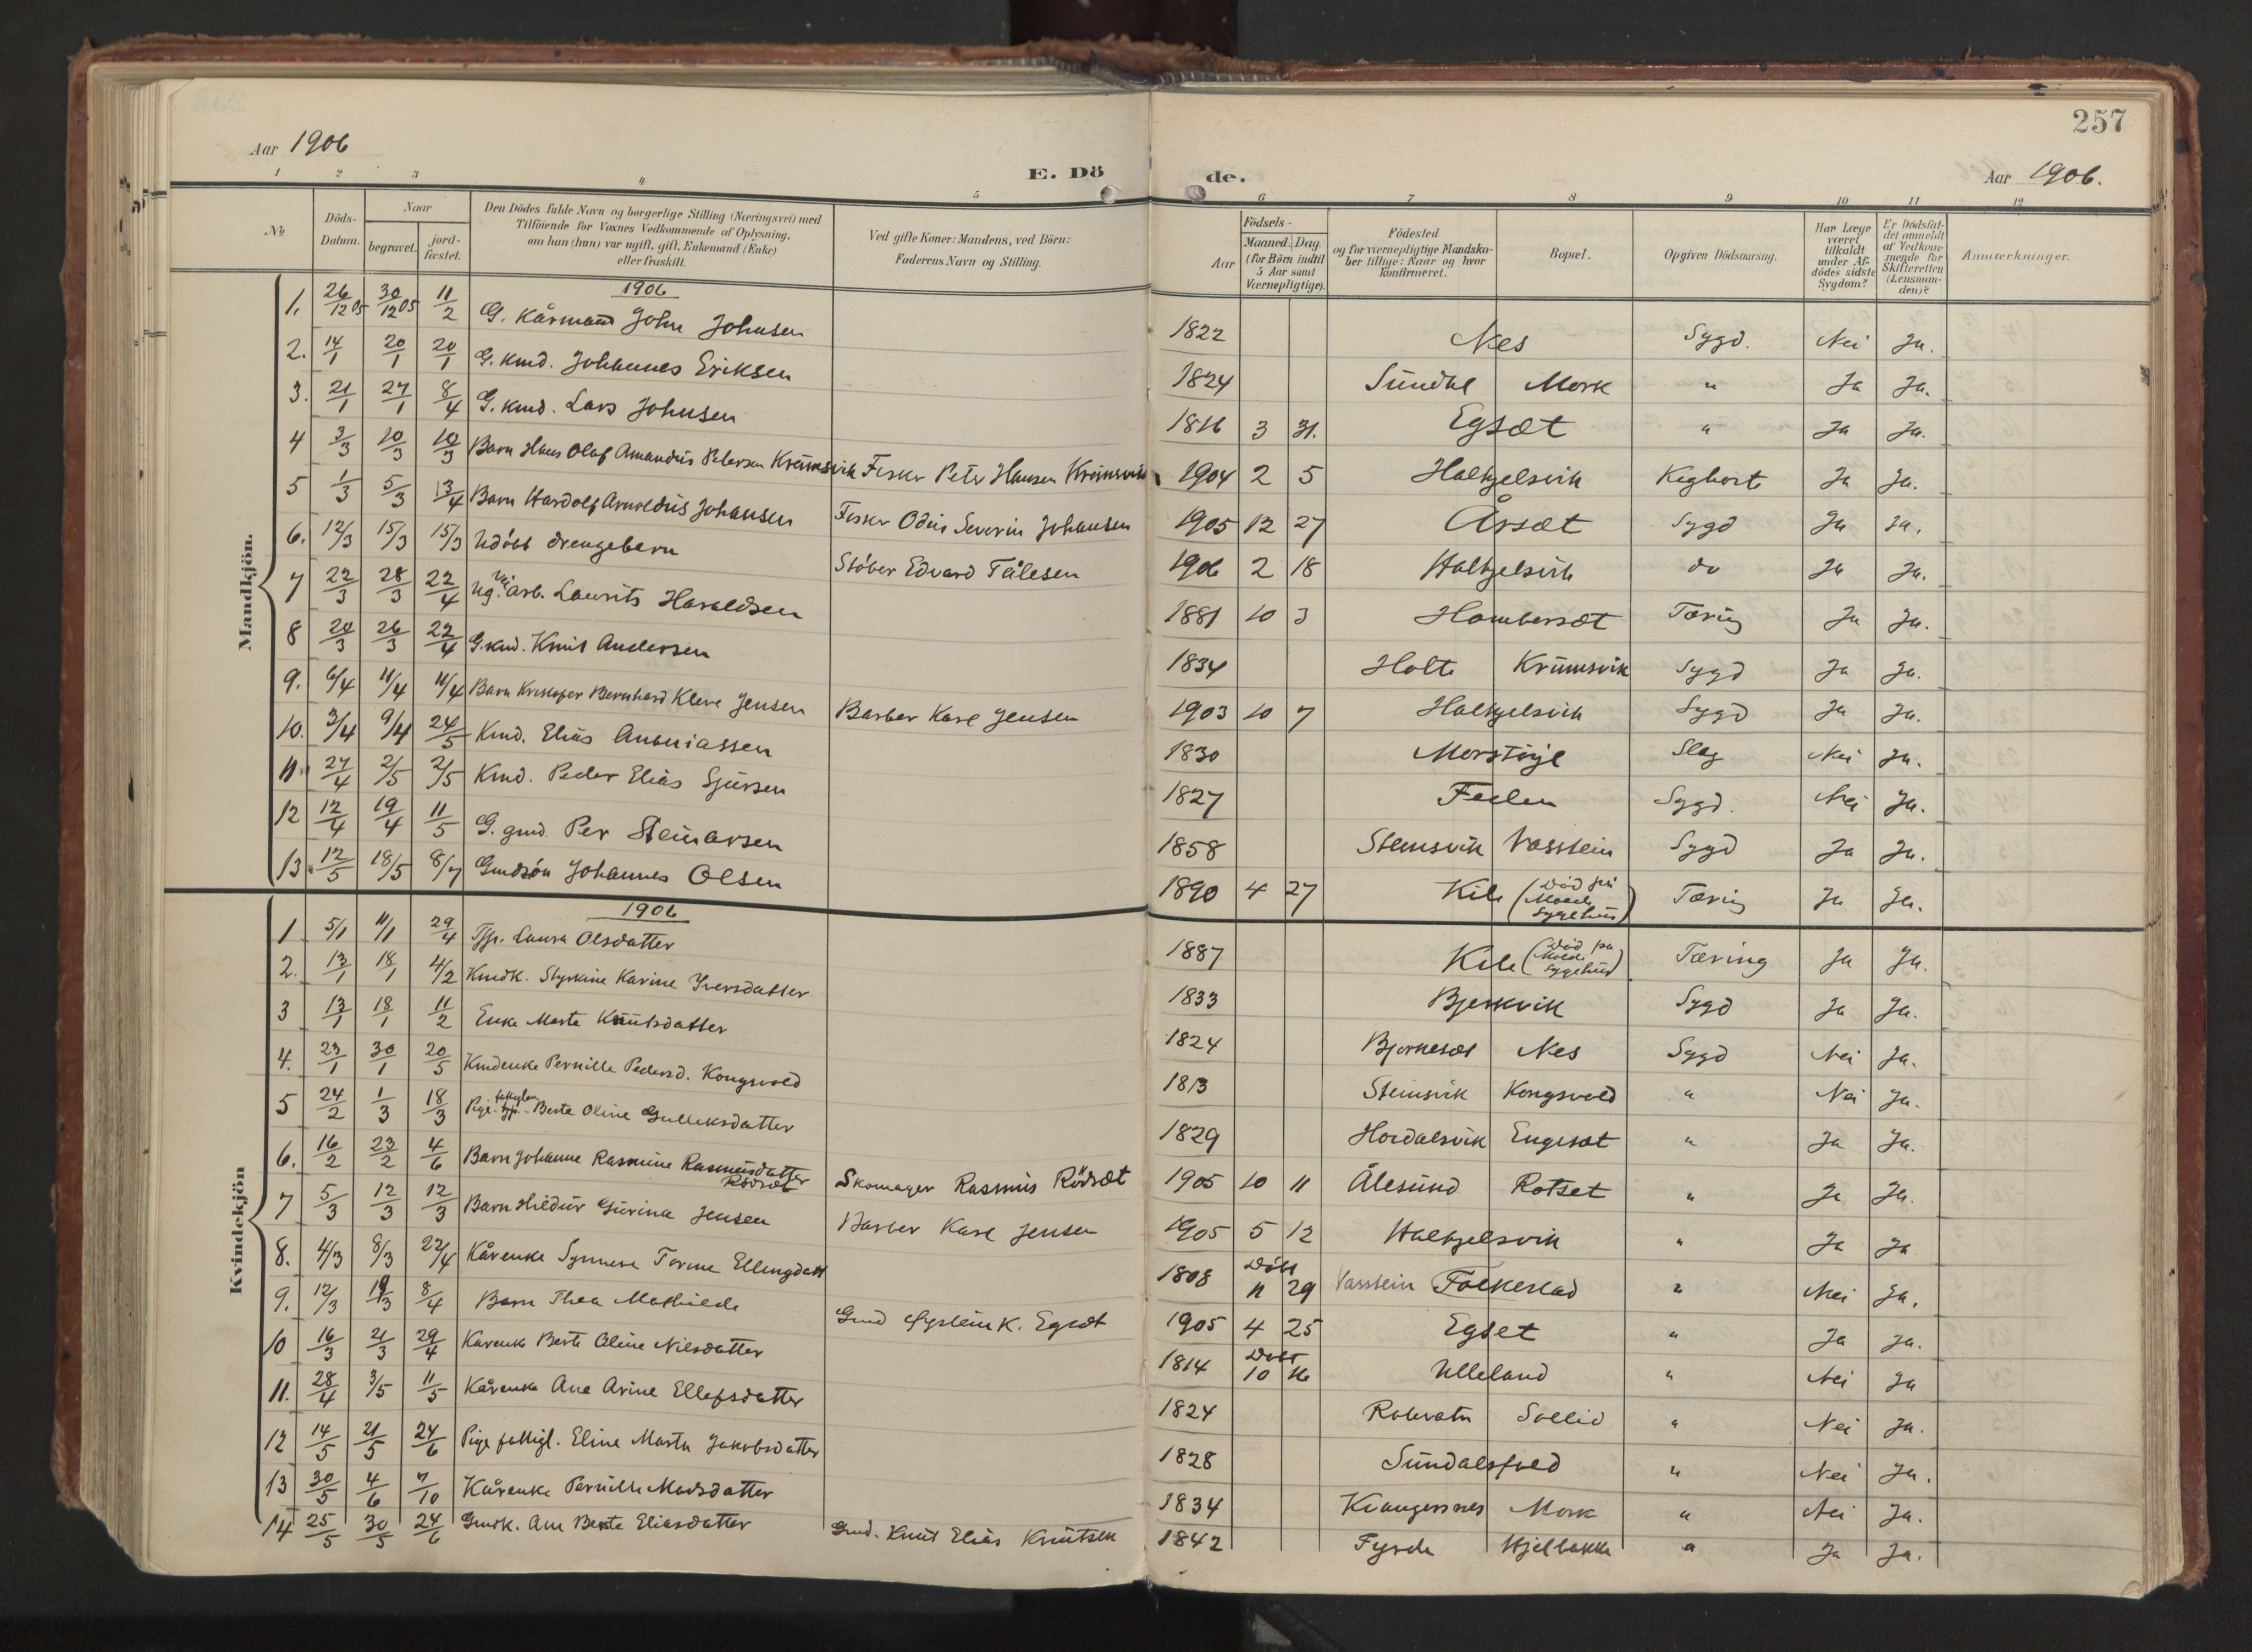 257
Aar 1906
E. Döde.
Aar 1906.
1 2 3 4 5 6 7 8 9 10 11 12
№
Döds-Datum.
Naar
begravet.
jord-fæstet.
Den Dödes fulde Navn og borgerlige Stilling (Næringsvei) med
Tilföiende for Voxnes Vedkommende af Oplysning,
om han (hun) var ugift, gift, Enkemand (Enke)
eller fraskilt.
Ved gifte Koner: Mandens, ved Börn:
Faderens Navn og Stilling.
Födsels-
Aar
Maaned. Dag
(for Börn indtil
5 Aar samt
Værnepligtige).
Födested
og for værnepligtige Mandska-
ber tillige: Naar og hvor
konfirmeret.
Bopæl.
Opgiven Dödsaarsag.
Har Læge
været
tilkaldt
under Af-
dödes sidste
Sygdom?
Er Dödsfal-
det anmeldt
af Vedkom-
mende for
Skifteretten
(Lensman-
den)?
Anmærkninger.
Mandkjön.
1906
1. 26/12 05 30/12 05 11/2 G. Kårmand John Johnsen 1822 Nes Sygd. Nei Ja.
2. 14/1 20/1 20/1 G. kmd. Johannes Eriksen 1824 Sundal Mork " Ja Ja.
3. 21/1 27/1 8/4 G. kmd. Lars Johnsen 1816 3 31. Egsæt " Ja Ja.
4 3/3 10/3 10/3 Barn Hans Olaf Amandus Petersen Krumsvik Fisker Peter Hansen Krumsvik 1904 2 5 Halkjelsvik Kighoste Ja Ja.
5 1/3 5/3 13/4 Barn Hardolf Arnoldus Johansen Fisker Odin Severin Johansen 1905 12 27 Årsæt Sygd Ja Ja.
6. 12/3 15/3 15/3 Udöbt drengebarn Støber Edvard Tålesen 1906 2 18 Halkjelsvik do Ja Ja.
7 22/3 28/3 22/4 Ug. arb. Laurits Haraldsen 1881 10 3 Hambersæt Tæring Ja Ja.
8 20/3 26/3 22/4 G. kmd. Knut Andersen 1834 Holte Krumsvik Sygd Ja Ja.
9. 6/4 11/4 11/4 Barn Kristofer Bernhard Kleve Jensen Barber Karl Jensen 1903 10 7 Halkjelsvik Sygd Ja Ja.
10. 3/4 9/4 24/5 Kmd. Elias Ananiassen 1830 Morstøyl Slag Nei Ja.
11 27/4 2/5 2/5 Kmd. Peder Elias Sjursen 1827 Sygd. Nei Ja.
12 12/4 19/4 11/5 G. gmd. Per Steinarsen 1858 Steinsvik Vasstein Sygd Ja Ja.
13 12/5 18/5 8/7 Gmdsøn Johannes Olsen 1890 4 27 Kile (Død på Molde Sygehus) Tæring Ja Ja.
Kvindekjön
1906
1 5/1 11/1 29/4 Tjp. Laura Olsdatter 1887 Kile (Død på Molde Sygehus) Tæring Ja Ja.
2. 13/1 18/1 4/2 Kmdk. Styrkine Karine Iversdatter 1833 Bjerkvik Sygd Ja Ja.
3 13/1 18/1 11/2 Enke Marta Knutsdatter 1824 Bjørnesæt Nes Sygd Nei Ja.
4. 23/1 30/1 20/5 Kmdenke Pernille Pedersd. Kongsvold 1813 Steinsvik Kongsvold " Nei Ja.
5 24/2 1/3 18/3 Pige Berte Oline Gulleksdatter 1829 Hordalsvik Engesæt " Ja Ja.
6. 16/2 23/2 4/6 Barn Johanne Rasmine Rasmusdatter Rödsæt Skomager Rasmus Rödsæt 1905 10 11 Ålesund Rotset " Ja Ja.
7 5/3 12/3 12/3 Barn Hildur Gurina Jensen Barber Karl Jensen 1905 5 12 Halkjelsvik " Ja Ja
8. 4/3 8/3 22/4 Kårenke Synneve Torme Ellingdatt 1808 Döbt 11 29 Vasstein Folkestad " Nei Ja.
9. 12/3 19/3 8/4 Barn Thea Mathilde Gmd Eystein K. Egsæt 1905 4 25 Egset " Ja Ja.
10 16/3 21/3 29/4 Kårenke Berte Oline Nilsdatter 1814 Døbt 10 16 Ulleland " Nei Ja
11. 28/4 3/5 11/5 Kårenke Ane Arine Ellefsdatter 1824 Rotevatn Sollid " Nei Ja.
12 14/5 21/5 24/6 Pige fattigl. Eline Marta Jakobsdatter 1828 Sundalsfoed " Nei Ja.
13 30/5 4/6 7/10 Kårenke Pernille Madsdatter 1834 Kvangersnes Mork " Nei Ja.
14 25/5 30/5 24/6 Gmdk. Ane Berte Eliasdatter Gmd. Knut Elias Knutsen 1842 Fyrde Hjelbakke " Ja Ja.